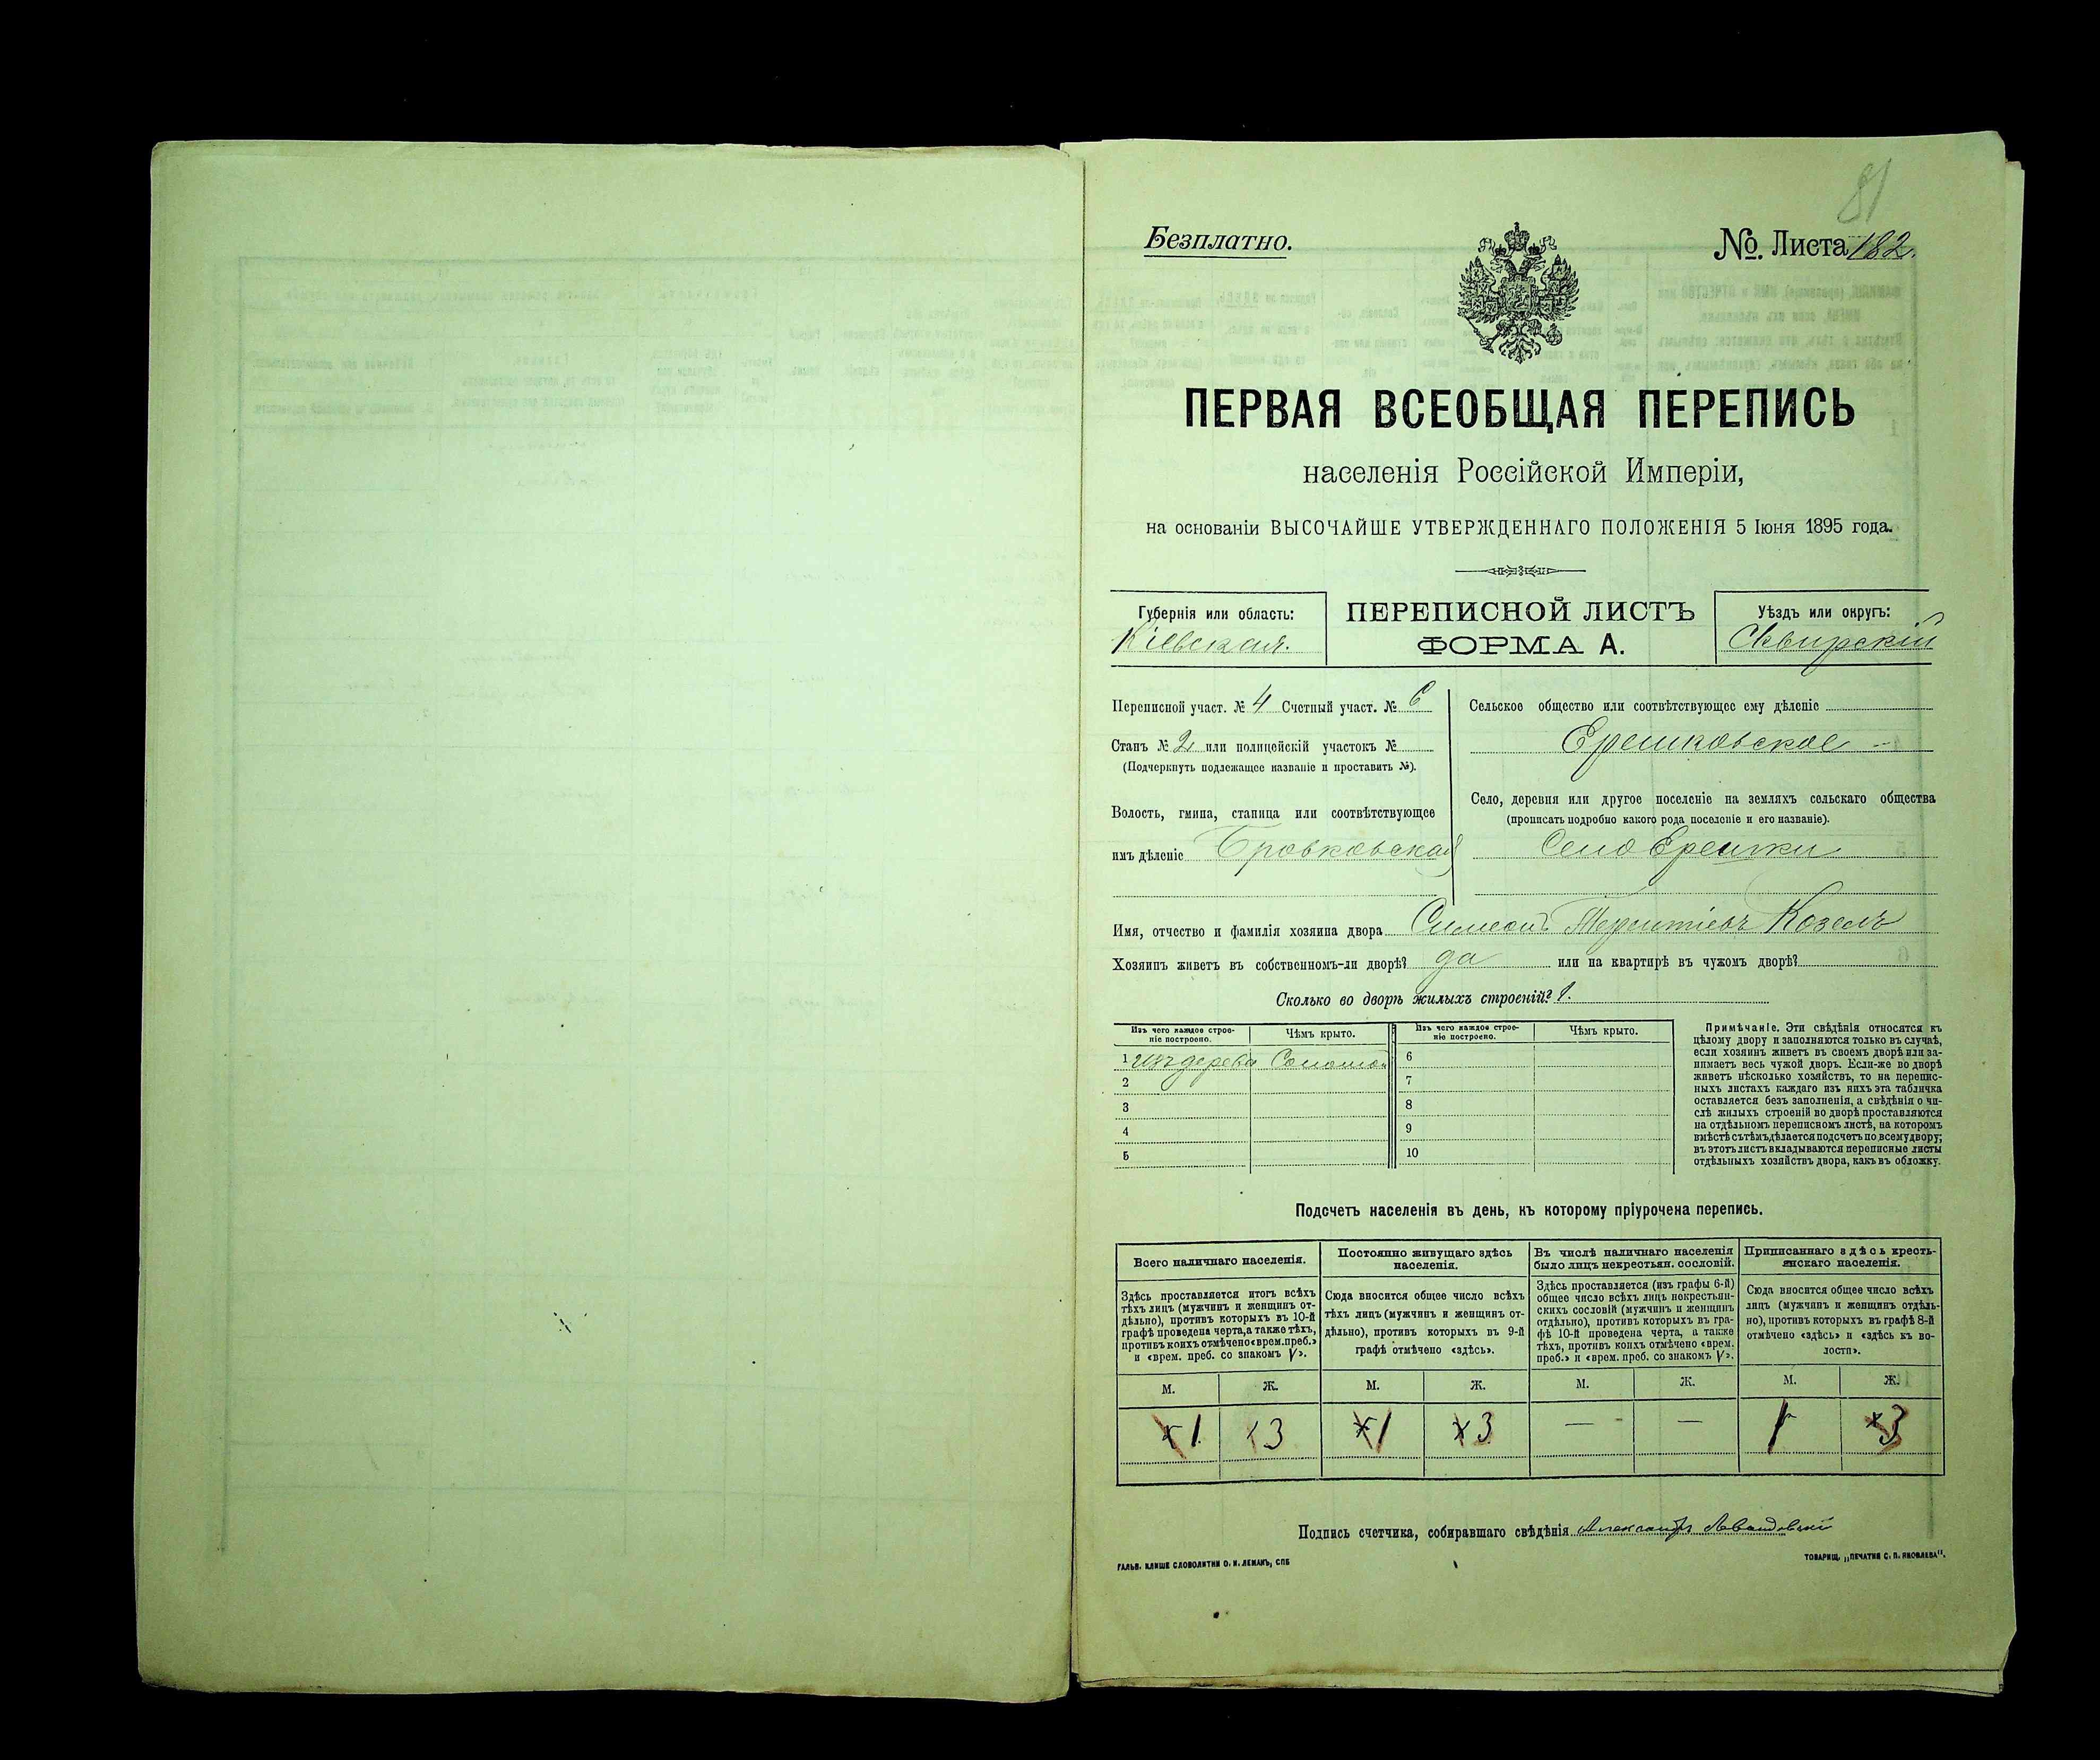 81
Безплатно.
№. Листа 182.
ПЕРВАЯ ВСЕОБЩАЯ ПЕРЕПИСЬ
населенія Россійской Имперіи,
на основаніи ВЫСОЧАЙШЕ УТВЕРЖДЕННАГО ПОЛОЖЕНІЯ 5 Іюня 1895 года.
Губернія или область:
Кіевская.
ПЕРЕПИСНОЙ ЛИСТЪ
ФОРМА А.
Уѣздъ или округъ:
Сквирскій
Переписной участ. № 4 Счетный участ. № 6
Станъ № 2 или полицейскій участокъ №
(Подчеркнуть подлежащее названіе и проставить №).
Волость, гмина, станица или соотвѣтствующее
имъ дѣленіе Бровковская
Сельское общество или соотвѣтствующее ему дѣленіе
Ерешковское
Село, деревня или другое поселеніе на земляхъ сельскаго общества
(прописать подробно какого рода поселеніе и его названіе).
Село Ерешки
Имя, отчество и фамилія хозяина двора Симеонъ Терентіевъ Козелъ
Хозяинъ живетъ въ собственномъ-ли дворѣ? да или на квартирѣ въ чужомъ дворѣ?
Сколько во дворѣ жилыхъ строеній? 1.
Изъ чего каждое строе-
ніе построено.
Чѣмъ крыто.
Изъ чего каждое строе-
ніе построено.
Чѣмъ крыто.
1 Изъ дерева Соломой 6
2 7
3 8
4 9
5 10
Примѣчаніе. Эти свѣдѣнія относятся къ
цѣлому двору и заполняются только въ случаѣ,
если хозяинъ живетъ въ своемъ дворѣ или за-
нимаетъ весь чужой дворъ. Если-же во дворѣ
живетъ нѣсколько хозяйствъ, то на перепис-
ныхъ листахъ каждаго изъ нихъ эта табличка
оставляется безъ заполненія, а свѣдѣнія о чи-
слѣ жилыхъ строеній во дворѣ проставляются
на отдѣльномъ переписномъ листѣ, на которомъ
вмѣстѣ съ тѣмъ дѣлается подсчетъ по всему двору;
въ этотъ листъ вкладываются переписные листы
отдѣльныхъ хозяйствъ двора, какъ въ обложку.
Подсчетъ населенія въ день, къ которому пріурочена перепись.
Всего наличнаго населенія.
Здѣсь проставляется итогъ всѣхъ
тѣхъ лицъ (мужчинъ и женщинъ от-
дѣльно), противъ которыхъ въ 10-й
графѣ проведена черта, а также тѣхъ,
противъ коихъ отмѣчено «врем. преб.»
и «врем. преб. со знакомъ V».
Постоянно живущаго здѣсь
населенія.
Сюда вносится общее число всѣхъ
тѣхъ лицъ (мужчинъ и женщинъ от-
дѣльно), противъ которыхъ въ 9-й
графѣ отмѣчено «здѣсь».
Въ числѣ наличнаго населенія
было лицъ некрестьян. сословій.
Здѣсь проставляется (изъ графы 6-й)
общее число всѣхъ лицъ некрестьян-
скихъ сословій (мужчинъ и женщинъ
отдѣльно), противъ которыхъ въ гра-
фѣ 10-й проведена черта, а также
тѣхъ, противъ коихъ отмѣчено «врем.
преб.» и «врем. преб. со знакомъ V».
Приписаннаго здѣсь кресть-
янскаго населенія.
Сюда вносится общее число всѣхъ
лицъ (мужчинъ и женщинъ отдѣль-
но), противъ которыхъ въ графѣ 8-й
отмѣчено «здѣсь» и «здѣсь къ во-
лости».
М. Ж. М. Ж. М. Ж. М. Ж.
1 3 1 3 — — 1 3
Подпись счетчика, собиравшаго свѣдѣнія Александръ Левандовскій
ГАЛЬВ. КЛИШЕ СЛОВОЛИТНИ О. И. ЛЕМАНЪ, СПБ
ТОВАРИЩ. „ПЕЧАТНЯ С. П. ЯКОВЛЕВА".